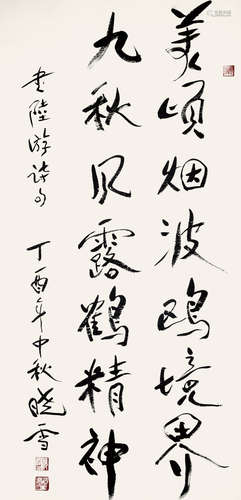 萬頃烟波鸥境界
九秋风露鶴精神
书陸游诗句 丁酉年中秋晓雪